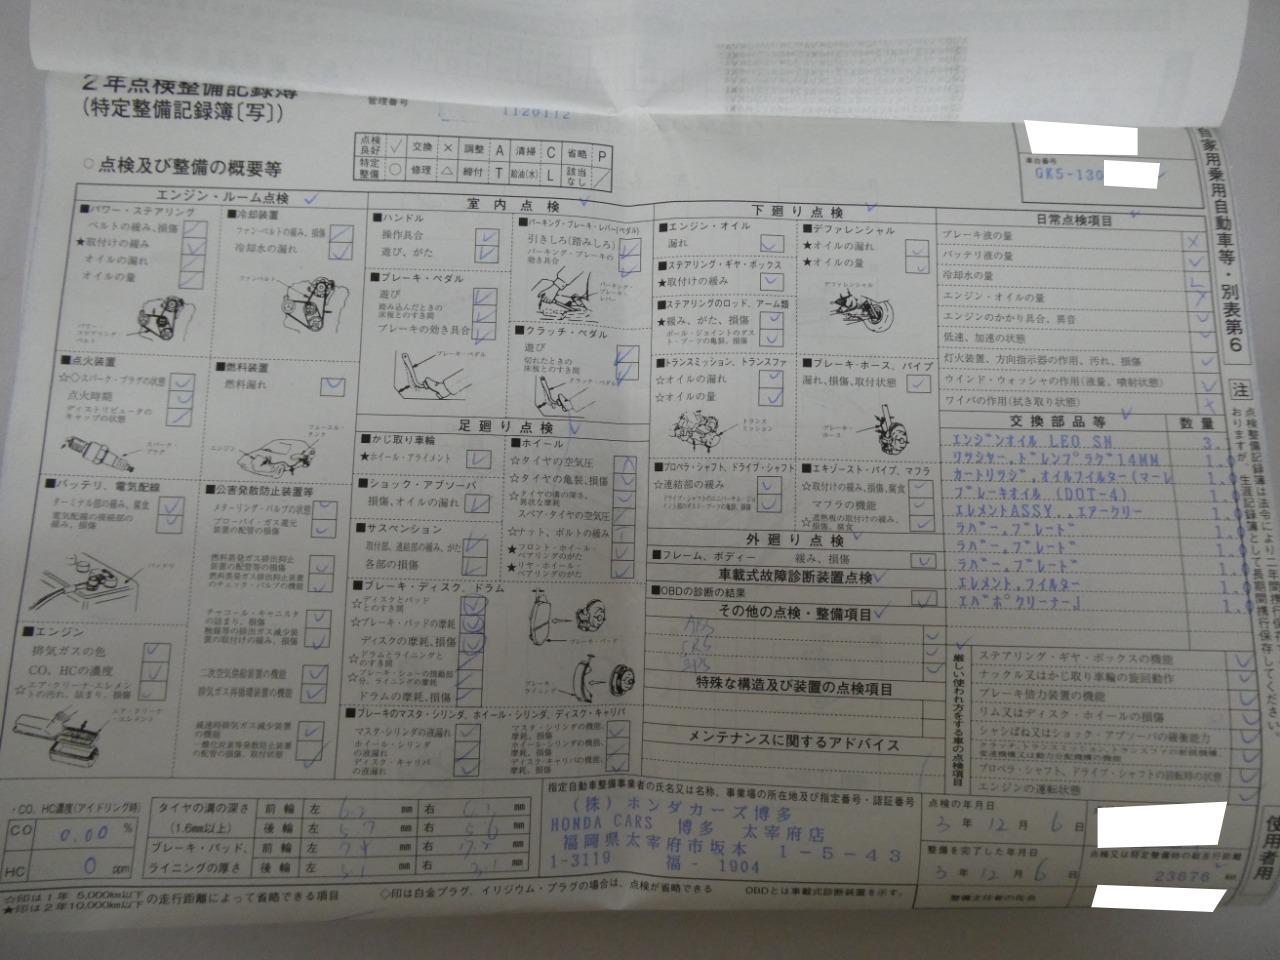 2年点検整備記録簿
(特定整備記録簿〔写〕)
管理番号 1120112
点検良好 ✓ 交換 × 調整 A 清掃 C 省略 P
特定整備 ○ 修理 △ 締付 T 給油(水) L 該当なし ／
車台番号
GK5-130
○ 点検及び整備の概要等
自家用乗用自動車等・別表第6
エンジン・ルーム点検
■パワー・ステアリング
ベルトの緩み、損傷
★取付けの緩み
オイルの漏れ
オイルの量
パワー・ステアリング・ベルト
■冷却装置
ファン・ベルトの緩み、損傷
冷却水の漏れ
ファンベルト
■点火装置
☆◇スパーク・プラグの状態
点火時期
ディストリビュータのキャップの状態
スパーク・プラグ
■燃料装置
燃料漏れ
フューエル・タンク
エンジン
■バッテリ、電気配線
ターミナル部の緩み、腐食
電気配線の接続部の緩み、損傷
バッテリ
■公害発散防止装置等
メターリング・バルブの状態
ブローバイ・ガス還元装置の配管の損傷
燃料蒸発ガス排出抑止装置の配管等の損傷
燃料蒸発ガス排出抑止装置のチェック・バルブの機能
チャコール・キャニスタの詰まり、損傷
触媒等の排出ガス減少装置の取付けの緩み、損傷
二次空気供給装置の機能
排気ガス再循環装置の機能
減速時排気ガス減少装置の機能
一酸化炭素等発散防止装置の配管の損傷、取付状態
■エンジン
排気ガスの色
CO、HCの濃度
☆エア・クリーナ・エレメントの汚れ、詰まり、損傷
エア・クリーナ・エレメント
室内点検
■ハンドル
操作具合
遊び、がた
■ブレーキ・ペダル
遊び
踏み込んだときの床板とのすき間
ブレーキの効き具合
ブレーキ・ペダル
■パーキング・ブレーキ・レバー(ペダル)
引きしろ(踏みしろ)
パーキング・ブレーキの効き具合
パーキング・ブレーキ・レバー
■クラッチ・ペダル
遊び
切れたときの床板とのすき間
クラッチ・ペダル
足廻り点検
■かじ取り車輪
★ホイール・アライメント
■ショック・アブソーバ
損傷、オイルの漏れ
■サスペンション
取付部、連結部の緩み、がた
各部の損傷
■ホイール
☆タイヤの空気圧
☆タイヤの亀裂、損傷
☆タイヤの溝の深さ、異状な摩耗
スペア・タイヤの空気圧
☆ナット、ボルトの緩み
★フロント・ホイール・ベアリングのがた
★リヤ・ホイール・ベアリングのがた
■ブレーキ・ディスク、ドラム
☆ディスクとパッドとのすき間
☆ブレーキ・パッドの摩耗
ディスクの摩耗、損傷
☆ドラムとライニングとのすき間
☆ブレーキ・シューの摺動部分、ライニングの摩耗
ドラムの摩耗、損傷
ブレーキ・パッド
ブレーキ・ライニング
■ブレーキのマスタ・シリンダ、ホイール・シリンダ、ディスク・キャリパ
マスタ・シリンダの液漏れ
ホイール・シリンダの液漏れ
ディスク・キャリパの液漏れ
マスタ・シリンダの機能、摩耗、損傷
ホイール・シリンダの機能、摩耗、損傷
ディスク・キャリパの機能、摩耗、損傷
下廻り点検
■エンジン・オイル
漏れ
■ステアリング・ギヤ・ボックス
★取付けの緩み
■ステアリングのロッド、アーム類
★緩み、がた、損傷
ボール・ジョイントのダスト・ブーツの亀裂、損傷
■トランスミッション、トランスファ
☆オイルの漏れ
☆オイルの量
トランスミッション
■プロペラ・シャフト、ドライブ・シャフト
☆連結部の緩み
ドライブ・シャフトのユニバーサル・ジョイント部のダスト・ブーツの亀裂、損傷
■デファレンシャル
★オイルの漏れ
★オイルの量
デファレンシャル
■ブレーキ・ホース、パイプ
漏れ、損傷、取付状態
ブレーキ・ホース
■エキゾースト・パイプ、マフラ
☆取付けの緩み、損傷、腐食
マフラの機能
☆遮熱板の取付けの緩み、損傷、腐食
外廻り点検
■フレーム、ボディー 緩み、損傷
車載式故障診断装置点検
■OBDの診断の結果
その他の点検・整備項目
特殊な構造及び装置の点検項目
メンテナンスに関するアドバイス
日常点検項目
ブレーキ液の量
バッテリ液の量
冷却水の量
エンジン・オイルの量
エンジンのかかり具合、異音
低速、加速の状態
灯火装置、方向指示器の作用、汚れ、損傷
ウインド・ウォッシャの作用(液量、噴射状態)
ワイパの作用(拭き取り状態)
交換部品等 数量
エンジンオイル LEO SN 3.
ワッシャー,ドレンプラグ14MM 1.0
カートリッジ,オイルフィルター(マーレ 1.0
ブレーキオイル (DOT-4) 1.0
エレメントASSY.,エアークリー 1.0
ラバー,ブレード 1.0
ラバー,ブレード 1.0
ラバー,ブレード 1.0
エレメント,フイルター 1.0
エバポクリーナーJ 1.0
厳しい使われ方をする車の点検項目
ステアリング・ギヤ・ボックスの機能
ナックル又はかじ取り車輪の旋回動作
ブレーキ倍力装置の機能
リム又はディスク・ホイールの損傷
シャシばね又はショック・アブソーバの緩衝能力
プロペラ・シャフト、ドライブ・シャフトの回転時の状態
エンジンの運転状態
注 点検整備記録簿は法令により二年間携行
おりますが、生涯記録簿として長期間携行保存してください。
・CO、HC濃度(アイドリング時)
CO 0.00 %
HC 0 ppm
タイヤの溝の深さ (1.6mm以上)
前輪 左 mm 右 mm
後輪 左 mm 右 mm
ブレーキ・パッド、ライニングの厚さ
前輪 左 mm 右 mm
後輪 左 mm 右 mm
指定自動車整備事業者の氏名又は名称、事業場の所在地及び指定番号・認証番号
(株) ホンダカーズ博多
HONDA CARS 博多 太宰府店
福岡県太宰府市坂本 1-5-43
1-3119 福- 1904
点検の年月日
3 年 12 月 6 日
整備を完了した年月日
3 年 12 月 6 日
点検又は特定整備時の総走行距離
23676 km
整備主任者の氏名
使用者用
☆印は1年 5,000km以下
★印は2年10,000km以下 の走行距離によって省略できる項目
◇印は白金プラグ、イリジウム・プラグの場合は、点検が省略できる
OBDとは車載式診断装置を示す。